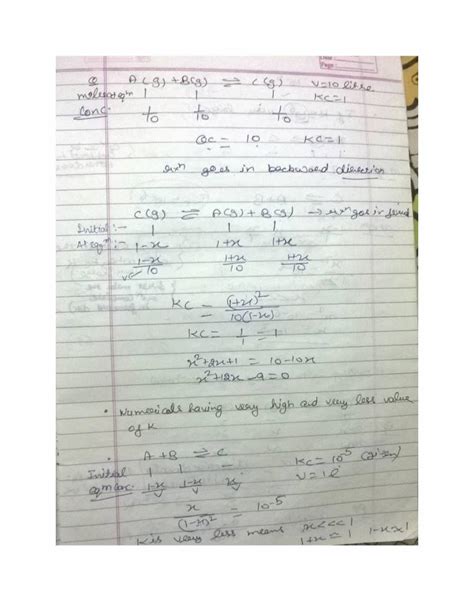 Page:
Q A(g) + B(g) ⇌ C(g) V=10 litre
moles at eqm 1 1 1 KC=1
Conc. 1/10 1/10 1/10
QC = 10 KC=1
rxn goes in backward direction
C(g) ⇌ A(g) + B(g) → rxn goes in forward
Initial :- 1 1 1
At eqm :- 1-x 1+x 1+x
1-x/10 1+x/10 1+x/10
KC = (1+x)²/10(1-x)
KC = 1/1 = 1
x²+2x+1 = 10-10x
x²+12x-9=0
• Numericals having very high and very less value
of K
A + B ⇌ C KC = 10⁻⁵ (given)
Initial 1 1 - V = 1l
eqm conc. 1-x/V 1-x/V x/V
x/(1-x)² = 10⁻⁵
K is very less means x<<<1
1+x ≈ 1 1-x≈1